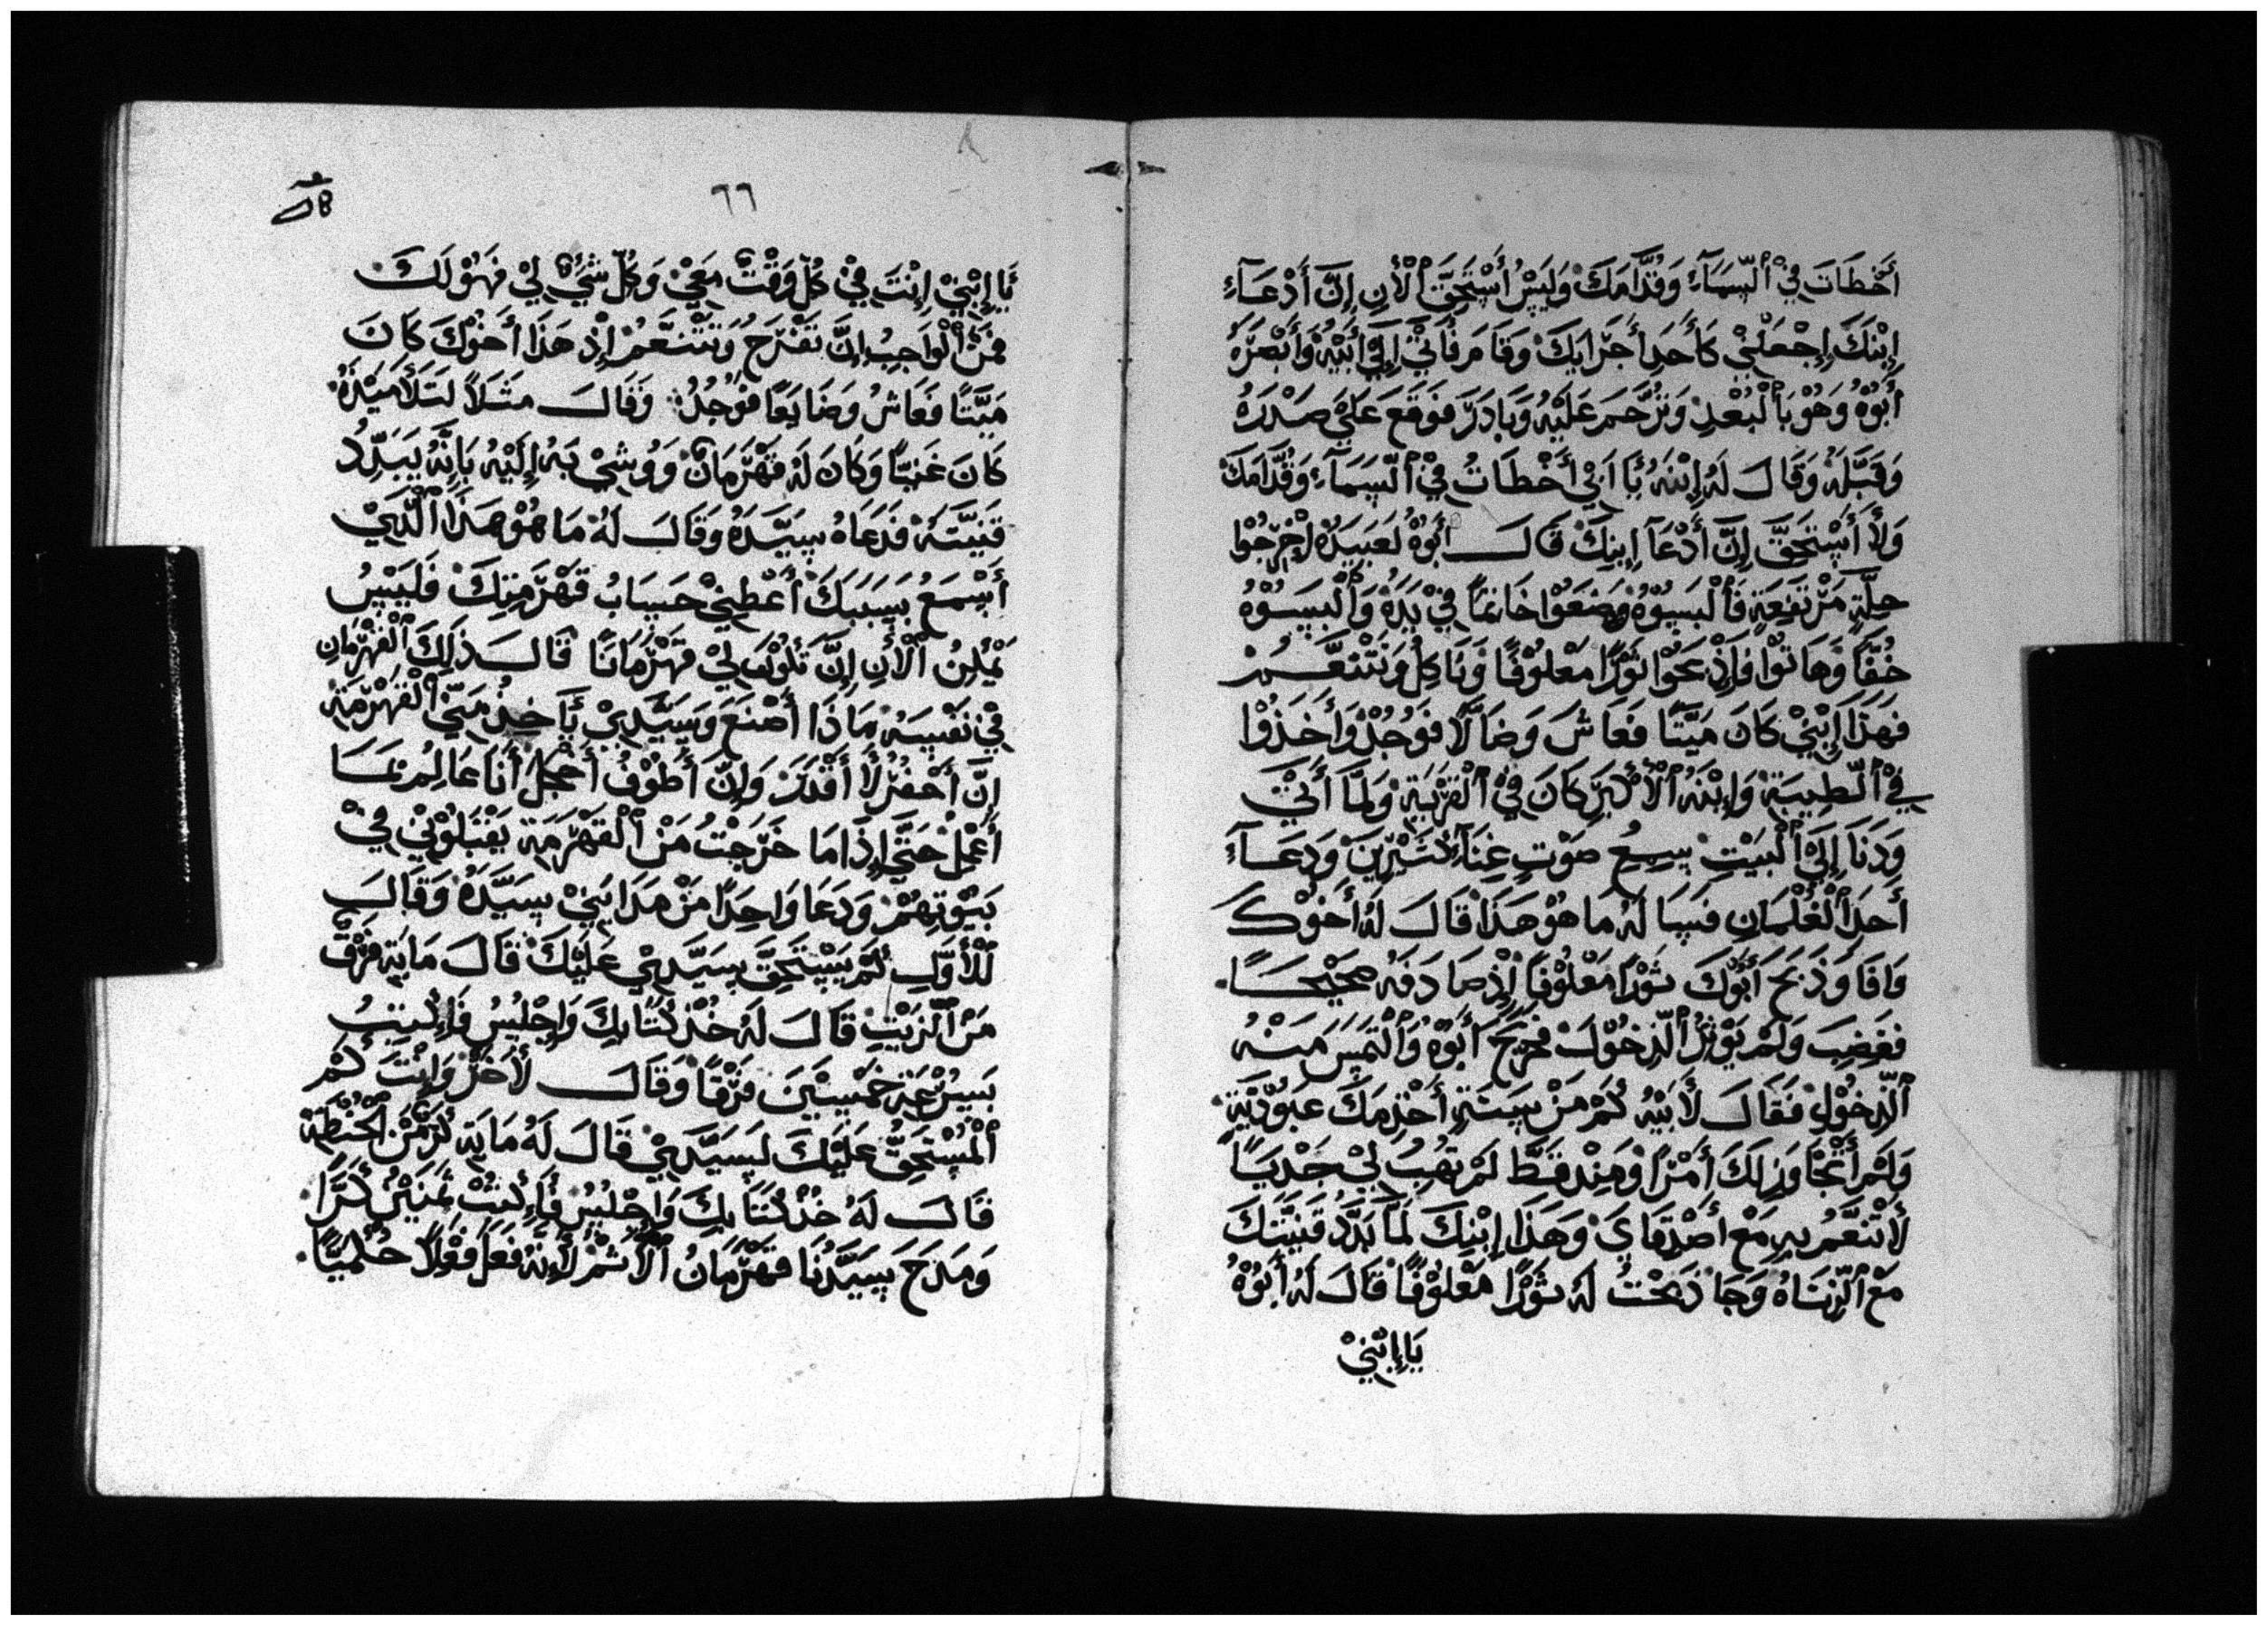 أَخْطَاتَ فِيْ اَلسَّمَآءِ وَقُدَّامَكَ وَلَيْسُ أَسْتَحِقَّ اَلْأَنِ إِنَّ أَدْعَآءِ
إِبْنَكَ إِجْعَلْنِيْ كَأَحَدِ أَجَرَايَكَ وَقَامَ فَأَتَيْ إِلَيْ أَبَيْهُ وَأَبْصَرَهُ
أَبُوْهُ وَهُوْ بَاَلْبُعْدِ وَتَرَّحَمَ عَلَيْهُ وَبَادَرَ فَوَقَعَ عَلَيْ صَدْرَهُ
وَقَبَّلَهُ وَقَالَ لَهُ إِبْنَهُ يَا اَبِيْ أَخْطَاتُ فِيْ اَلسَّمَآءِ وَقُدَّامَكَ
وَلَأَ أَسْتَحِقَّ إِنَّ أَدْعَآ إِبنِكَ قَالَ أَبُوْهُ لَعَبِيَدُهُ إِخْرِجُوْا
حِلَّةٍ مَرْتَفِعَةٍ فَأَلْبَسِوْهُ وَضَعَوْا خَاتِمًا فِيْ يَدَهُ وَأَلْبَسَوْهُ
خُفًّا وَهَاتوْا فَإِذْبَحَوْا ثَوْرًا مَعْلُوْفًا وَنَاكِلُ وَنَتْنَعَّمُ
فَهَذَا إِبْنِيْ كَانَ مَيْتًا فَعَاشَ وَضَالًا فَوُجُدَ وَأَخَذُوْا
فِيْ اَلطِيبَةِ وَإِبْنَهُ اَلْأَكْبَرَ كَانَ فِيْ اَلْقَرْيَةِ وَلَمَّا أَتَيْ
وَدَنَا إِلَيْ اَلْبَيْتِ سِمِعُ صَوْتِ غِنَآءِ كَثِيْرِينَ وَدَعَآءِ
أَحَدَ اَلْغْلْمَانِ فَسَا لَهُ مَا هُوْ هَذَا قَالَ لَهُ أَخَوْكَ
وَافَا وَذَبَحَ أَبُوْكَ ثَوْرًا مَعْلُوْفًا إِذْ صَادَفَهُ صَحِيْحًا
فَغَضِبَ وَلَمْ يَوْثِرُ اَلدِّخُوْلَ فَخَرَجَ أَبُوْهُ وَاَلْتَمَسَ مَنْهُ
اَلدِّخُوْلِ فَقَالَ لأَبَيْهُ كَمْ مَنْ سِنَةٍ أَخْدِمَكَ عَبَوْدِيَّةِ
وَلَمْ أَتَجَاوَزِ لَكَ أَمْرًا وَمِنِدْ قَطَّ لَمْ تَهِبُ لِيْ جَدْيَا
لأَتْنَعَّمُ بِهِ مَعْ أَصْدِقَايَ وَهَذَا إِبْنِكَ لَمَّا بَدَّدُ قَنِيَتَكَ
مَعْ اَلزِّنَاهُ وَجَا ذَبَحْتُ لَهُ ثَوْرًا مَعْلُوْفًا قَالَ لَهُ أَبُوْهُ
يَا إِبْنِيْ
٦٦
يَا إِبْنِيْ إِنْتَ فِيْ كُلِّ وَقْتٌ مَعِيْ وَكُلِّ شَيْءٌ لِيْ فَهَوْ لَكَ
فَمَنْ اَلْوَاجِبُ إِنَّ تَفْرَحُ وَتَتْنَعَّمُ إِذْ هَذَا أَخُوْكَ كَانَ
مَيِّتًا فَعَاشُ وَضَايَعًا فَوُجُدُ وَقَالَ مَثَلاً لَتَلأَمَيْذَهُ
كَانَ غَنِيًّا وَكَانَ لَهُ قَهْرَمَانٌ وَوُشِيْ بَهِ إِلَيْهُ بَإِنَّهُ يَبَدِّدُ
قَنِيَّتَهُ فَدَعَاهُ سِيَّدَهُ وَقَالَ لَهُ مَا هُوْ هَذَا اَلَّذِيْ
أَسْمَعُ بِسَبَبَكَ أَعْطِنِيْ حَسَابُ قَهْرَمَتِكَ فَلَيْسُ
يَمْكِنُ اَلْأَنِ إِنَّ تَكُوْنَ لِيْ قَهْرَمَانًا قَالَ ذَلِكَ اَلْقَهْرَمَانِ
فِيْ نَفْسَهُ مَاذَا أَصْنَعَ وَسَيِّدِيْ يَأَخِذُ مَنِّيْ اَلْقَهْرَمَةِ
إِنَّ أَحْفُرُ لَأَ أَقْدَرَ وَإِنَّ أَطُوْفُ أَخْجَلُ أَنَا عَالِمُ بَمَا
أَعْمِلُ حَتَّيْ إِذَا مَا خَرَجْتُ مَنْ اَلْقَهْرَمَةِ يَقْبَلُوْنِيْ فِيْ
بَيُوْتِهُمْ وَدَعَا وَاحِدًا مَنْ مَدَايَنِيْ سَيَّدَهُ وَقَالَ
لَلْأَوَّلِ كَمْ يَسْتَحِقَّ سَيِّدِيْ عَلَيْكَ قَالَ مَايَةِ فَرْقٌ
مَنْ اَلزَّيْتِ قَالَ لَهُ خُذْ كُتَّابِكَ وَإِجْلِسُ فَإِكْتِبُ
بَسُرْعَةٍ خَمْسِيْنَ فَرْقًا وَقَالَ لأَخَرْ وَإِنْتَ كَمْ
اَلْمُسْتَحِقُّ عَلَيْكَ لَسِيِّدِيْ قَالَ لَهُ مَايَةِ كُرِّ مَنْ اَلْحُنْطَةِ
قَالَ لَهُ خُذْ كَتَابِكَ وَإِجْلِسُ فَإِكْتِبُ ثَمَنِيْنَ كُرًّا
وَمَدَحَ سَيَّدَنَا قَهْرَمَانُ اَلْأَثْمُ لأَنَّهُ فَعَلَ فَعْلاً حُكْمِيًّا